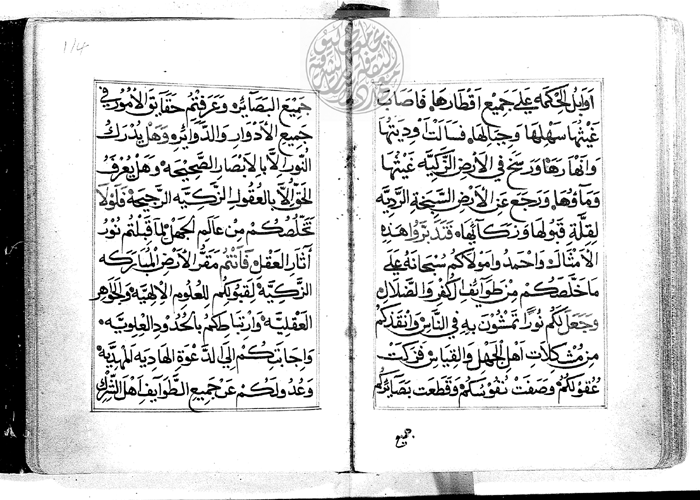 اوابل الحكمه على جميع اقطارها فاصاب
غيثها سهلها وجبالها فسالت اوديتها
وانهارها ورسخ في الارض الزكيه غيثها
وماؤها ورجع عن الارض السبخة الرديه
لقلة قبولها وزكائها فتدبروا هذه
الامثال واحمدوا مولاكم سبحانه على
ما خلصكم من طوايف الكفر والضلال
وجعل لكم نورا تمشون به في الناس وانقذكم
من مشكلات اهل الجهل والقياس فزكت
عقولكم وصفت نفوسكم وقطعت بصائركم
جميع
جميع البصائر وعرفتم حقايق الامور في
جميع الادوار والدوائر وهل يدرك
النور الا بالابصار الصحيحه وهل يعرف
الحق الا بالعقول الزكيه الرجيحه فلولا
تخلصكم من عالم الجهل لما قبلتم نور
آثار العقل فانتم مقر الارض المباركه
الزكية لقبولكم للعلوم الالهية والجواهر
العقلية وارتباطكم بالحدود العلوية
واجابتكم الى الدعوة الهاديه المهديه
وعدولكم عن جميع الطوايف اهل الشرك
174